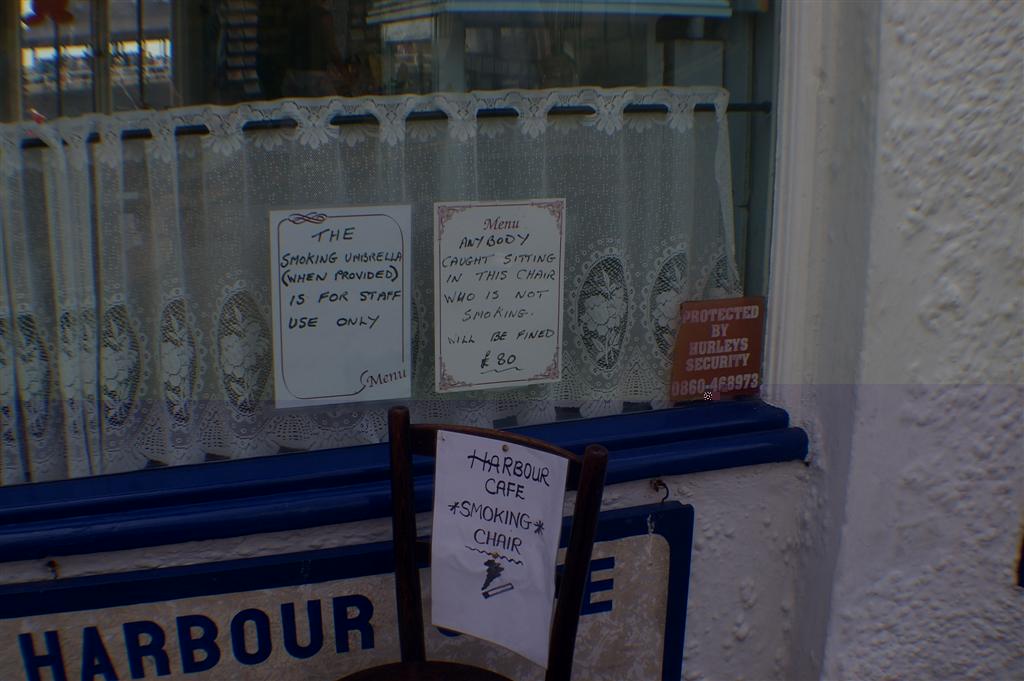 THE
SMOKING UMBRELLA
(WHEN PROVIDED)
IS FOR STAFF
USE ONLY
Menu
Menu
ANYBODY
CAUGHT SITTING
IN THIS CHAIR
WHO IS NOT
SMOKING.
WILL BE FINED
£80
PROTECTED
BY
HURLEYS
SECURITY
0860-468973
HARBOUR
CAFE
*SMOKING*
CHAIR
HARBOUR E